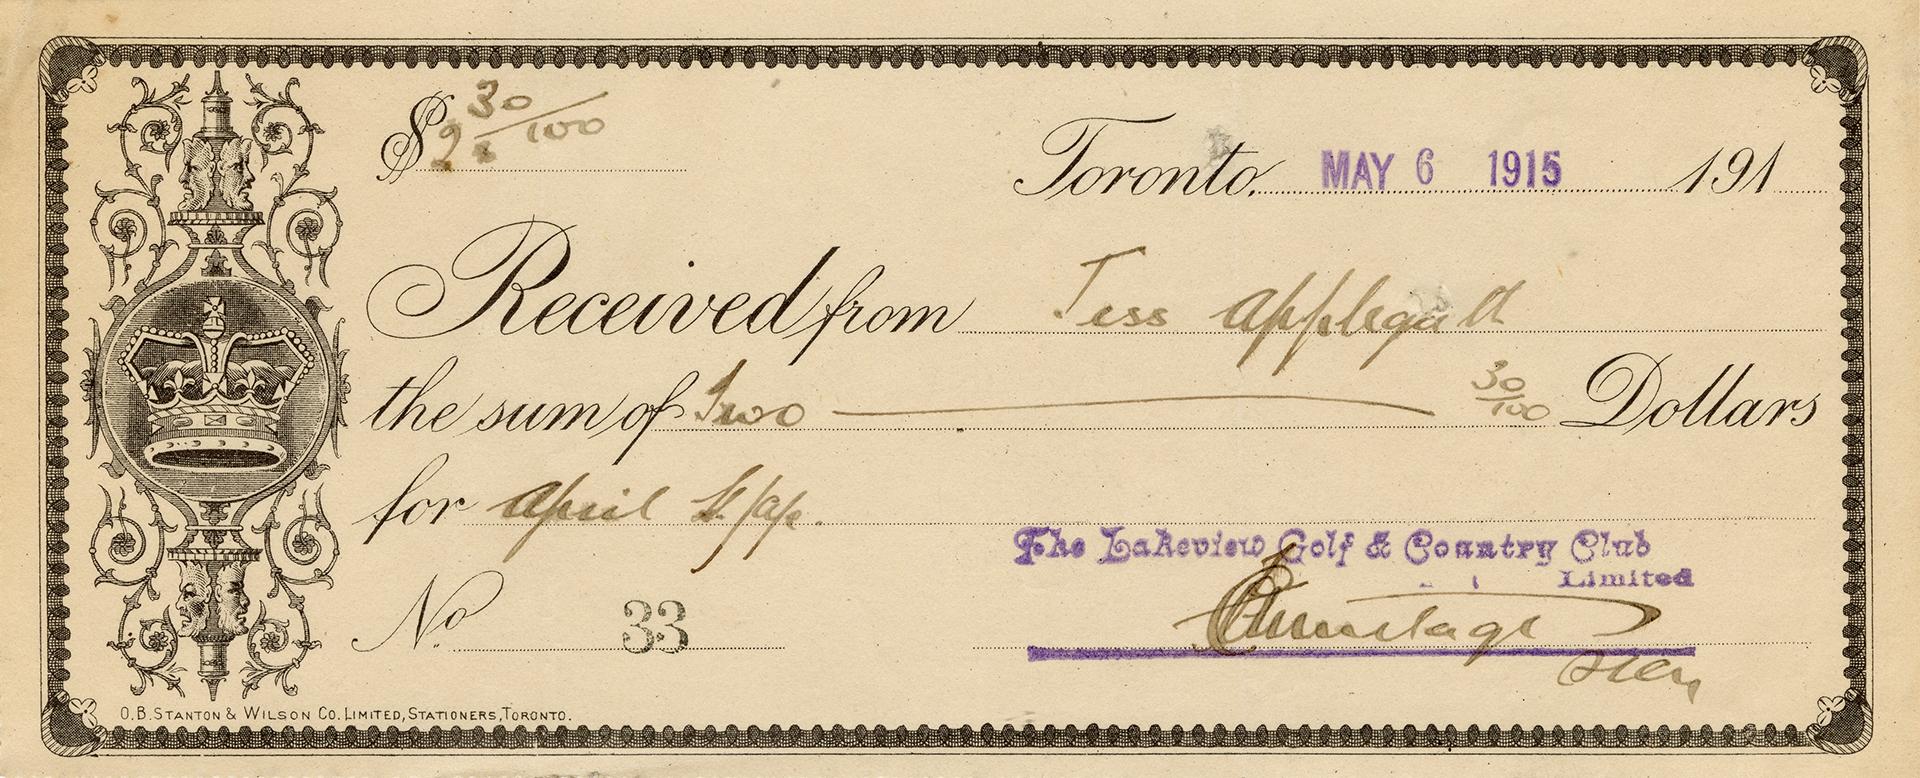 $ 2 30/100
Toronto, MAY 6 1915 191
Received from Jess Applegath
the sum of Two 30/100 Dollars
for April
The Lakeview Golf & Country Club
Limited
No. 33
O.B. STANTON & WILSON CO. LIMITED, STATIONERS, TORONTO.